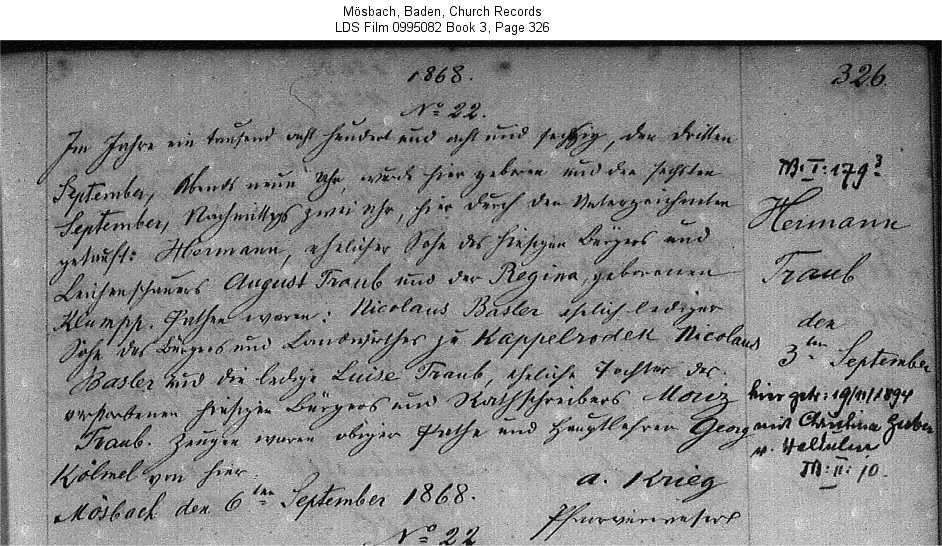 Mösbach, Baden, Church Records
LDS Film 0995082 Book 3, Page 326
1868.
326.
No 22.
Im Jahre ein tausend acht hundert und acht und sechzig, den dritten
September, Abends neun Uhr, wurde hier geboren und den sechsten
September, Nachmittags zwei Uhr, hier durch den Unterzeichneten
getauft: Hermann, ehelicher Sohn des hiesigen Bürgers und
Leichenschauers August Traub und der Regina, geborenen
Klumpp. Pathen waren: Nicolaus Basler ehelich lediger
Sohn des Bürgers und Landwirthes zu Kappelrodek Nicolaus
Basler und die ledige Luise Traub, eheliche Tochter des
verstorbenen hiesigen Bürgers und Rathschreibers Moriz
Traub. Zeugen waren obiger Pathe und Hauptlehrer Georg
Kölmel von hier.
Mösbach den 6ten September 1868.
A. Krieg
Pfarrverweser
No 22
B: I: 179
Hermann
Traub
den
3ten September
hier getr: 19/11/1894
mit Christina
v.
B: II: 10.